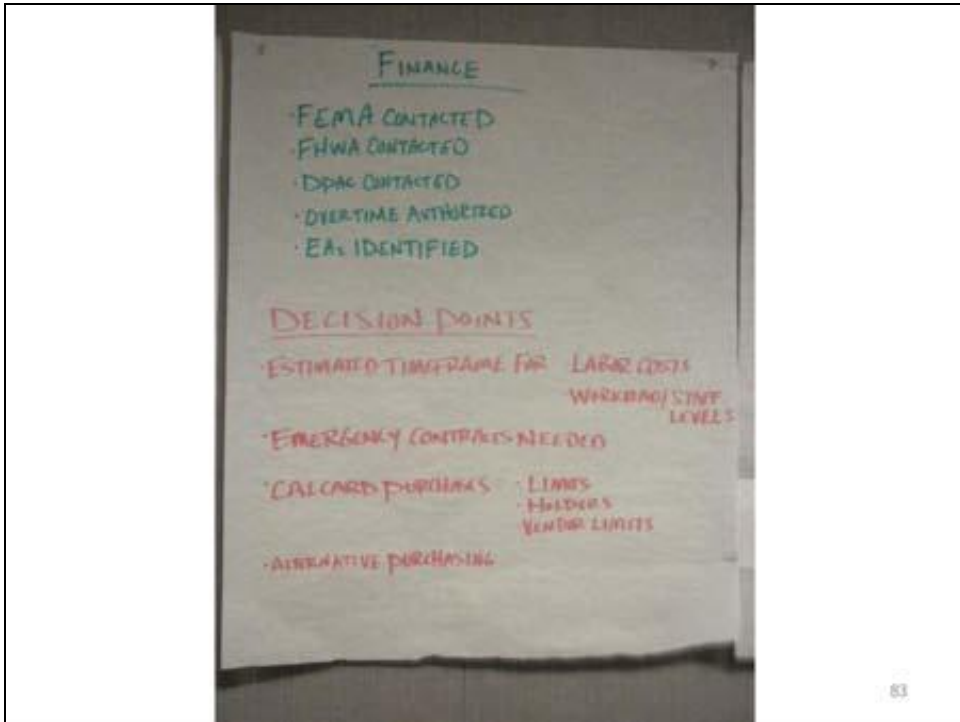 FINANCE
· FEMA CONTACTED
· FHWA CONTACTED
· DPAC CONTACTED
· OVERTIME AUTHORIZED
· EAs IDENTIFIED
DECISION POINTS
· ESTIMATED TIMEFRAME FOR LABOR COSTS
WORKLOAD/STAFF
LEVELS
· EMERGENCY CONTRACTS NEEDED
· CALCARD PURCHASES · LIMITS
· HOLDERS
· VENDOR LIMITS
· ALTERNATIVE PURCHASING
83